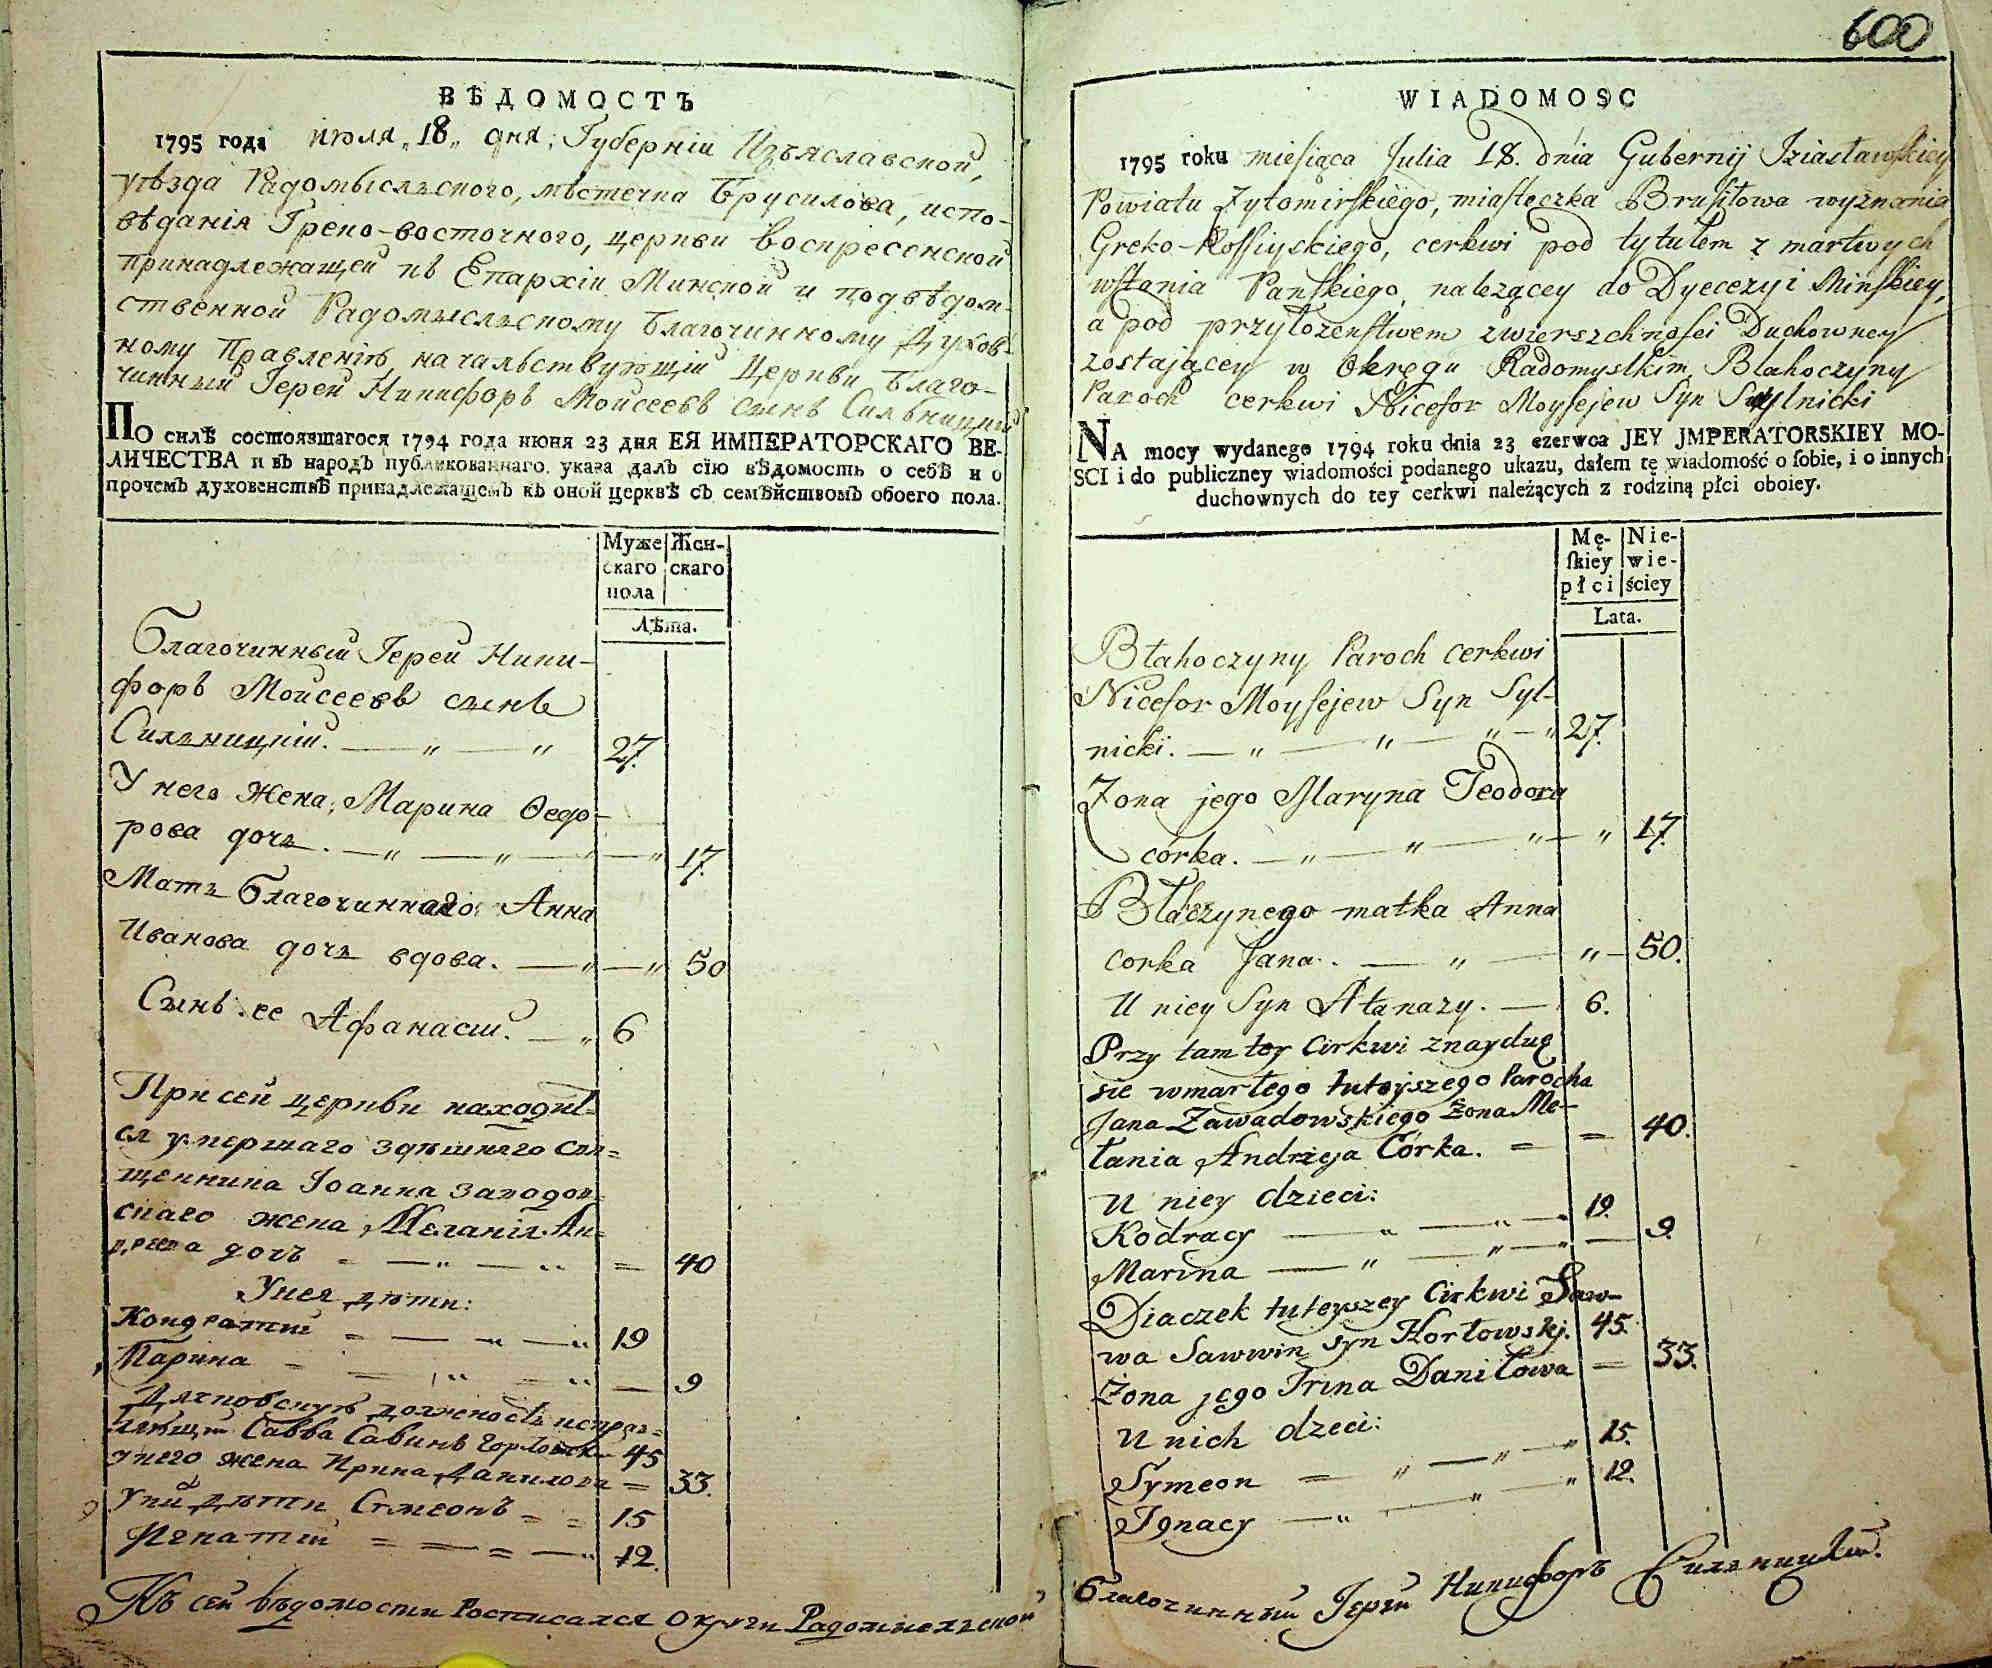 600
ВѢДОМОСТЬ
1795 года июля „18„ дня, Губерніи Изъяславской,
уѣзда Радомысльского, мѣстечка Брусилова, испо-
вѣданія Греко-восточного, церкви Воскресенской
принадлежащей къ Епархіи Минской и подвѣдом-
ственной Радомысльскому Благочинному Духов-
ному Правленію, начальствующій Церкви Благо-
чинный Іерей Никифоръ Моисеевъ сынъ Сильницкій
ПО силѣ состоявшагося 1794 года июня 23 дня ЕЯ ИМПЕРАТОРСКАГО ВЕ-
ЛИЧЕСТВА и въ народъ публикованнаго указа далъ сїю вѣдомость о себѣ и о
прочемъ духовенствѣ принадлежащемъ къ оной церквѣ съ семѣйствомъ обоего пола.
Муже Жен-
скаго скаго
пола
Лѣта.
Благочинный Іерей Ники-
форъ Моисеевъ сынъ
Сильницкій. — „ — „ 27.
У него жена, Марина Ѳедо-
рова дочь. — „ — „ — „ — „ 17.
Мать Благочиннаго Анна
Иванова дочь вдова. — „ — „ 50
Сынъ ее Афанасий. — „ 6
При сей церкви находит-
ся умершаго здѣшнего свя=
щенника Іоанна Завадов=
скаго жена, Меланія Ан=
дреева дочь = — „ — „ = 40
У нея дѣти:
Кондратий = — „ — „ 19
Марина = — „ = „ — 9
Дячковскую должность исправ=
ляющий Савва Савинъ Горловски 45
у него жена Ирина Данилова = 33.
У ний дѣти Симеонъ = = 15
Игнатий = — = — „ 12.
Къ сей вѣдомости Росписался округи Радомысльской
WIADOMOSC
1795 roku miesiąca Julia 18. dnia Gubernij Iziasławskiey
Powiatu Żytomirskiego, miasteczka Brusiłowa wyznania
Greko-Rossiyskiego, cerkwi pod tytułem z martwych
wstania Pańskiego, należącey do Dyecezyi Minskiey,
a pod przyłożenstwem zwierszchnosci Duchowney
zostającey w Okręgu Radomyslkim Błahoczyny
Paroch cerkwi Nicefor Moysejew Syn Sylnicki
NA mocy wydanego 1794 roku dnia 23 czerwca JEY JMPERATORSKIEY MO-
SCI i do publiczney wiadomości podanego ukazu, dałem tę wiadomość o sobie, i o innych
duchownych do tey cerkwi należących z rodziną płci oboiey.
Mę- Nie-
skiey wie-
płci ściey
Lata.
Błahoczyny Paroch cerkwi
Nicefor Moysejew Syn Syl-
nicki. — „ — „ — „ — „ 27.
Żona jego Maryna Teodora
córka. — „ — „ — „ — „ 17.
Błaczynego matka Anna
corka Jana. — „ — „ — 50.
U niey Syn Atanazy. — 6.
Przy tamtey Cirkwi znayduę
sie wmarłego tuteyszego Parocha
Jana Zawadowskiego żona Me-
łania Andrzeja Córka. = = 40.
U niey dzieci:
Kodracy — „ — „ — „ 19.
Marina — „ — „ — „ — 9.
Diaczek tuteyszey Cirkwi Saw-
wa Sawwin syn Horłowskj. 45.
Żona jego Irina Daniłowa = 33.
U nich dzeci:
Symeon = „ — „ — „ 15.
Ignacy — „ — „ — „ 12.
Благочинный Іерей Никифоръ Сильницкій.